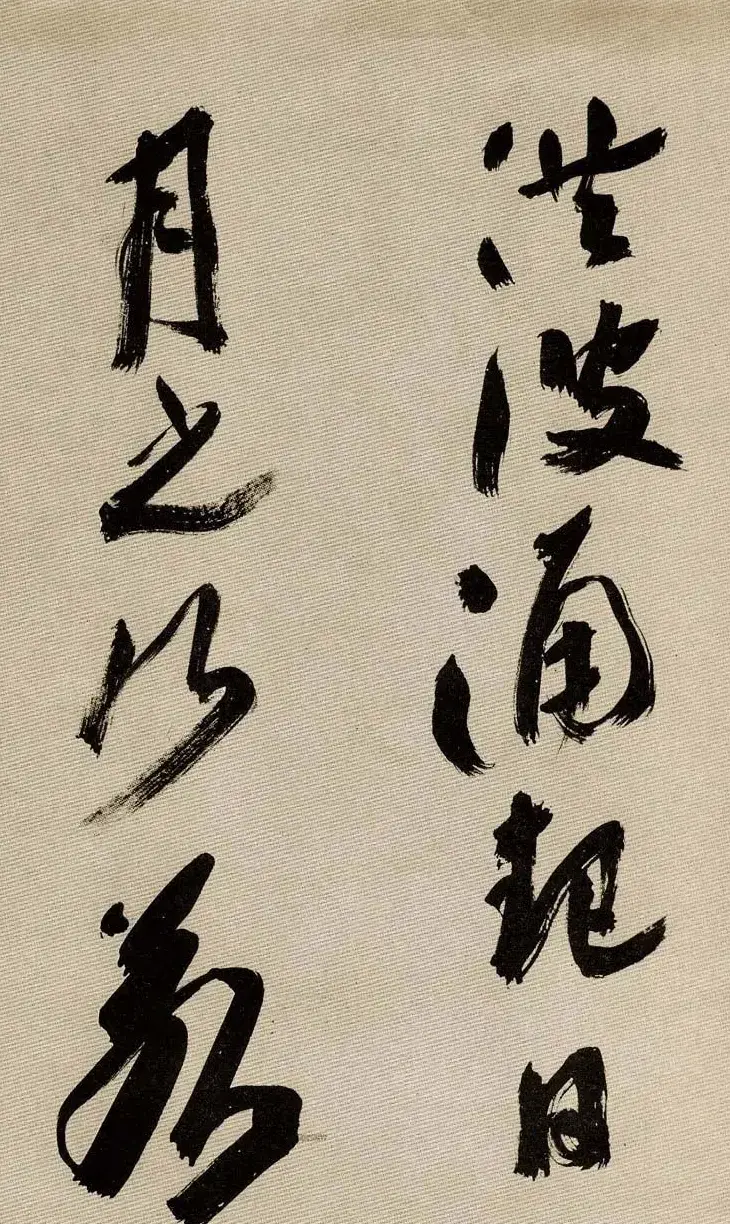 洪波涌起日
月之行若